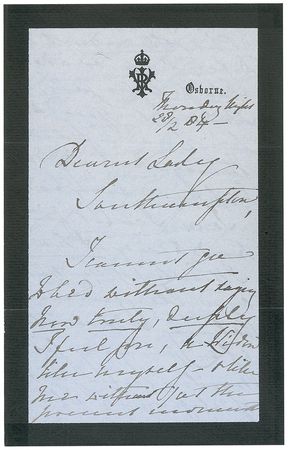 Osborne.
Thursday Night
28/2 84 –
Dearest Lady
Southampton,
I cannot go
to bed without saying
how truly, deeply
I feel for, a Widow
like myself – & like
me without at the
present moment